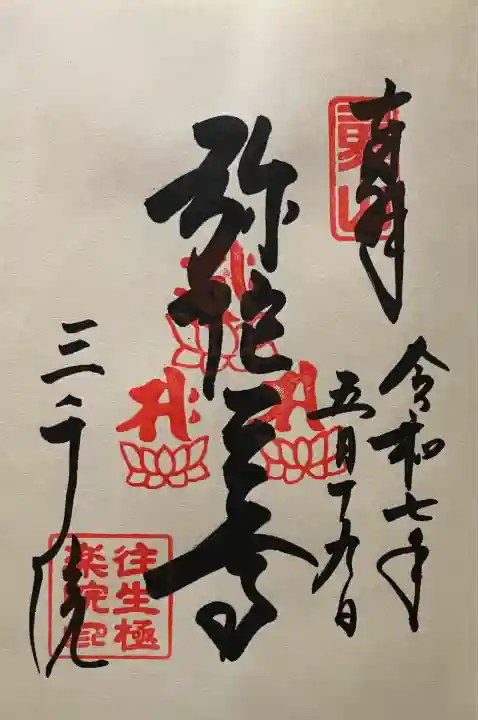 奉拝
令和七年
五月十九日
弥陀三尊
三千院
往生極
楽院記